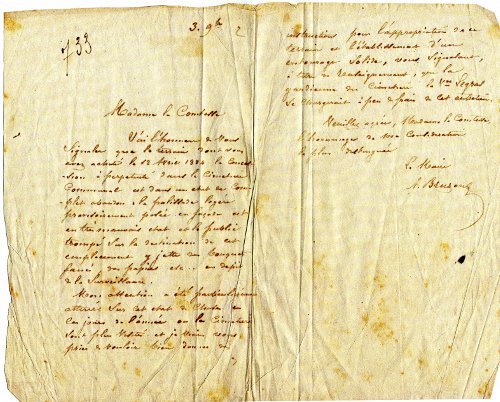 733
3. 9bre
Madame la Comtesse
J'ai l'honneur de vous
signaler que le terrain dont vous
avez acheté le 12 Avril 1884 la conces
sion à perpétuité dans le Cimetière
Communal est dans un état de com
plet abandon : la palissade légère
provisoirement posée en façade est
en très mauvais état et le public
trompé sur la destination de cet
emplacement y jette des bouquets
fanés, des papiers etc.. en dépit
de la surveillance.
Mon attention a été particulièrement
attirée sur cet état de choses en
ces jours de l'année où le Cimetière
est plus visité et je viens vous
prier de vouloir bien donner des
instructions pour l'appropriation de ce
terrain et l'établissement d'un
entourage solide, vous signalant,
à titre de renseignement, que la
gardienne du Cimetière la Vve
se chargerait à peu de frais de cet entretien.
Veuillez agréer, Madame la Comtesse
l'hommage de ma Considération
la plus distinguée
Le Maire
A.